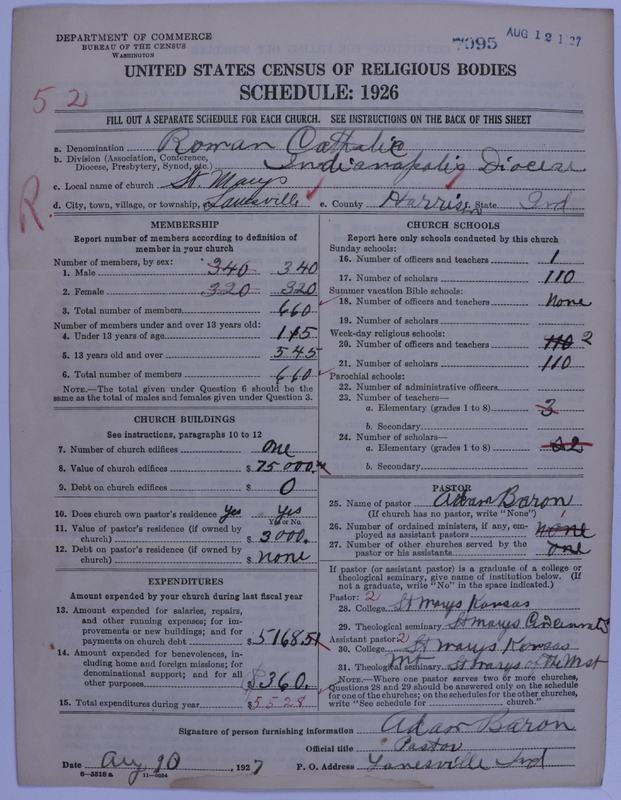 DEPARTMENT OF COMMERCE
BUREAU OF THE CENSUS
WASHINGTON
7095
AUG 12 1927
UNITED STATES CENSUS OF RELIGIOUS BODIES
SCHEDULE: 1926
52
FILL OUT A SEPARATE SCHEDULE FOR EACH CHURCH. SEE INSTRUCTIONS ON THE BACK OF THIS SHEET
a. Denomination Roman Catholic
b. Division (Association, Conference, Diocese, Presbytery, Synod, etc.) Indianapolis Diocese
c. Local name of church St. Marys
d. City, town, village, or township, Lanesville e. County Harrison State Ind
R.
MEMBERSHIP
Report number of members according to definition of
member in your church
Number of members, by sex:
1. Male 340 340
2. Female 320 320
3. Total number of members 660
Number of members under and over 13 years old:
4. Under 13 years of age 115
5. 13 years old and over 545
6. Total number of members 660
NOTE.—The total given under Question 6 should be
same as the total of males and females given under Question 3.
CHURCH BUILDINGS
See instructions, paragraphs 10 to 12
7. Number of church edifices one
8. Value of church edifices $ 75000.
9. Debt on church edifices $ 0
10. Does church own pastor's residence yes yes
Yes or No
11. Value of pastor's residence (if owned by
church) $ 3000.
12. Debt on pastor's residence (if owned by
church) $ none
EXPENDITURES
Amount expended by your church during last fiscal year
13. Amount expended for salaries, repairs,
and other running expenses; for im-
provements or new buildings; and for
payments on church debt $ 5168.51
14. Amount expended for benevolences, in-
cluding home and foreign missions; for
denominational support; and for all
other purposes $ 360.
15. Total expenditures during year $ 5528
CHURCH SCHOOLS
Report here only schools conducted by this church
Sunday schools:
16. Number of officers and teachers 1
17. Number of scholars 110
Summer vacation Bible schools:
18. Number of officers and teachers None
19. Number of scholars
Week-day religious schools:
20. Number of officers and teachers 110 2
21. Number of scholars 110
Parochial schools:
22. Number of administrative officers
23. Number of teachers—
a. Elementary (grades 1 to 8) 3
b. Secondary
24. Number of scholars—
a. Elementary (grades 1 to 8)
b. Secondary
PASTOR
25. Name of pastor Adam Baron
(If church has no pastor, write "None")
26. Number of ordained ministers, if any, em-
ployed as assistant pastors none
27. Number of other churches served by the
pastor or his assistants one
If pastor (or assistant pastor) is a graduate of a college or
theological seminary, give name of institution below. (If
not a graduate, write "No" in the space indicated.)
Pastor: 2
28. College St Marys Kansas
29. Theological seminary St Marys Cincinnati
Assistant pastor 2
30. College St Marys Kansas
31. Theological seminary Mt St Marys of the West
NOTE.—Where one pastor serves two or more churches,
Questions 28 and 29 should be answered only on the schedule
for one of the churches; on the schedules for the other churches,
write "See schedule for church."
Signature of person furnishing information Adam Baron
Official title Pastor
Date Aug 10, 1927 P. O. Address Lanesville Ind
6—5518a 11—9034